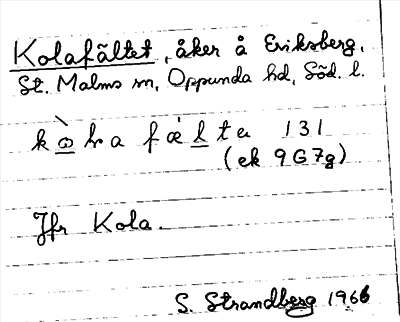 Kolafältet, åker å Eriksberg,
St. Malms sn, Oppunda hd, Söd. l.
kò̱la fæ̀ḻta 131
(ek 9G7g)
Jfr Kola.
S. Strandberg 1966